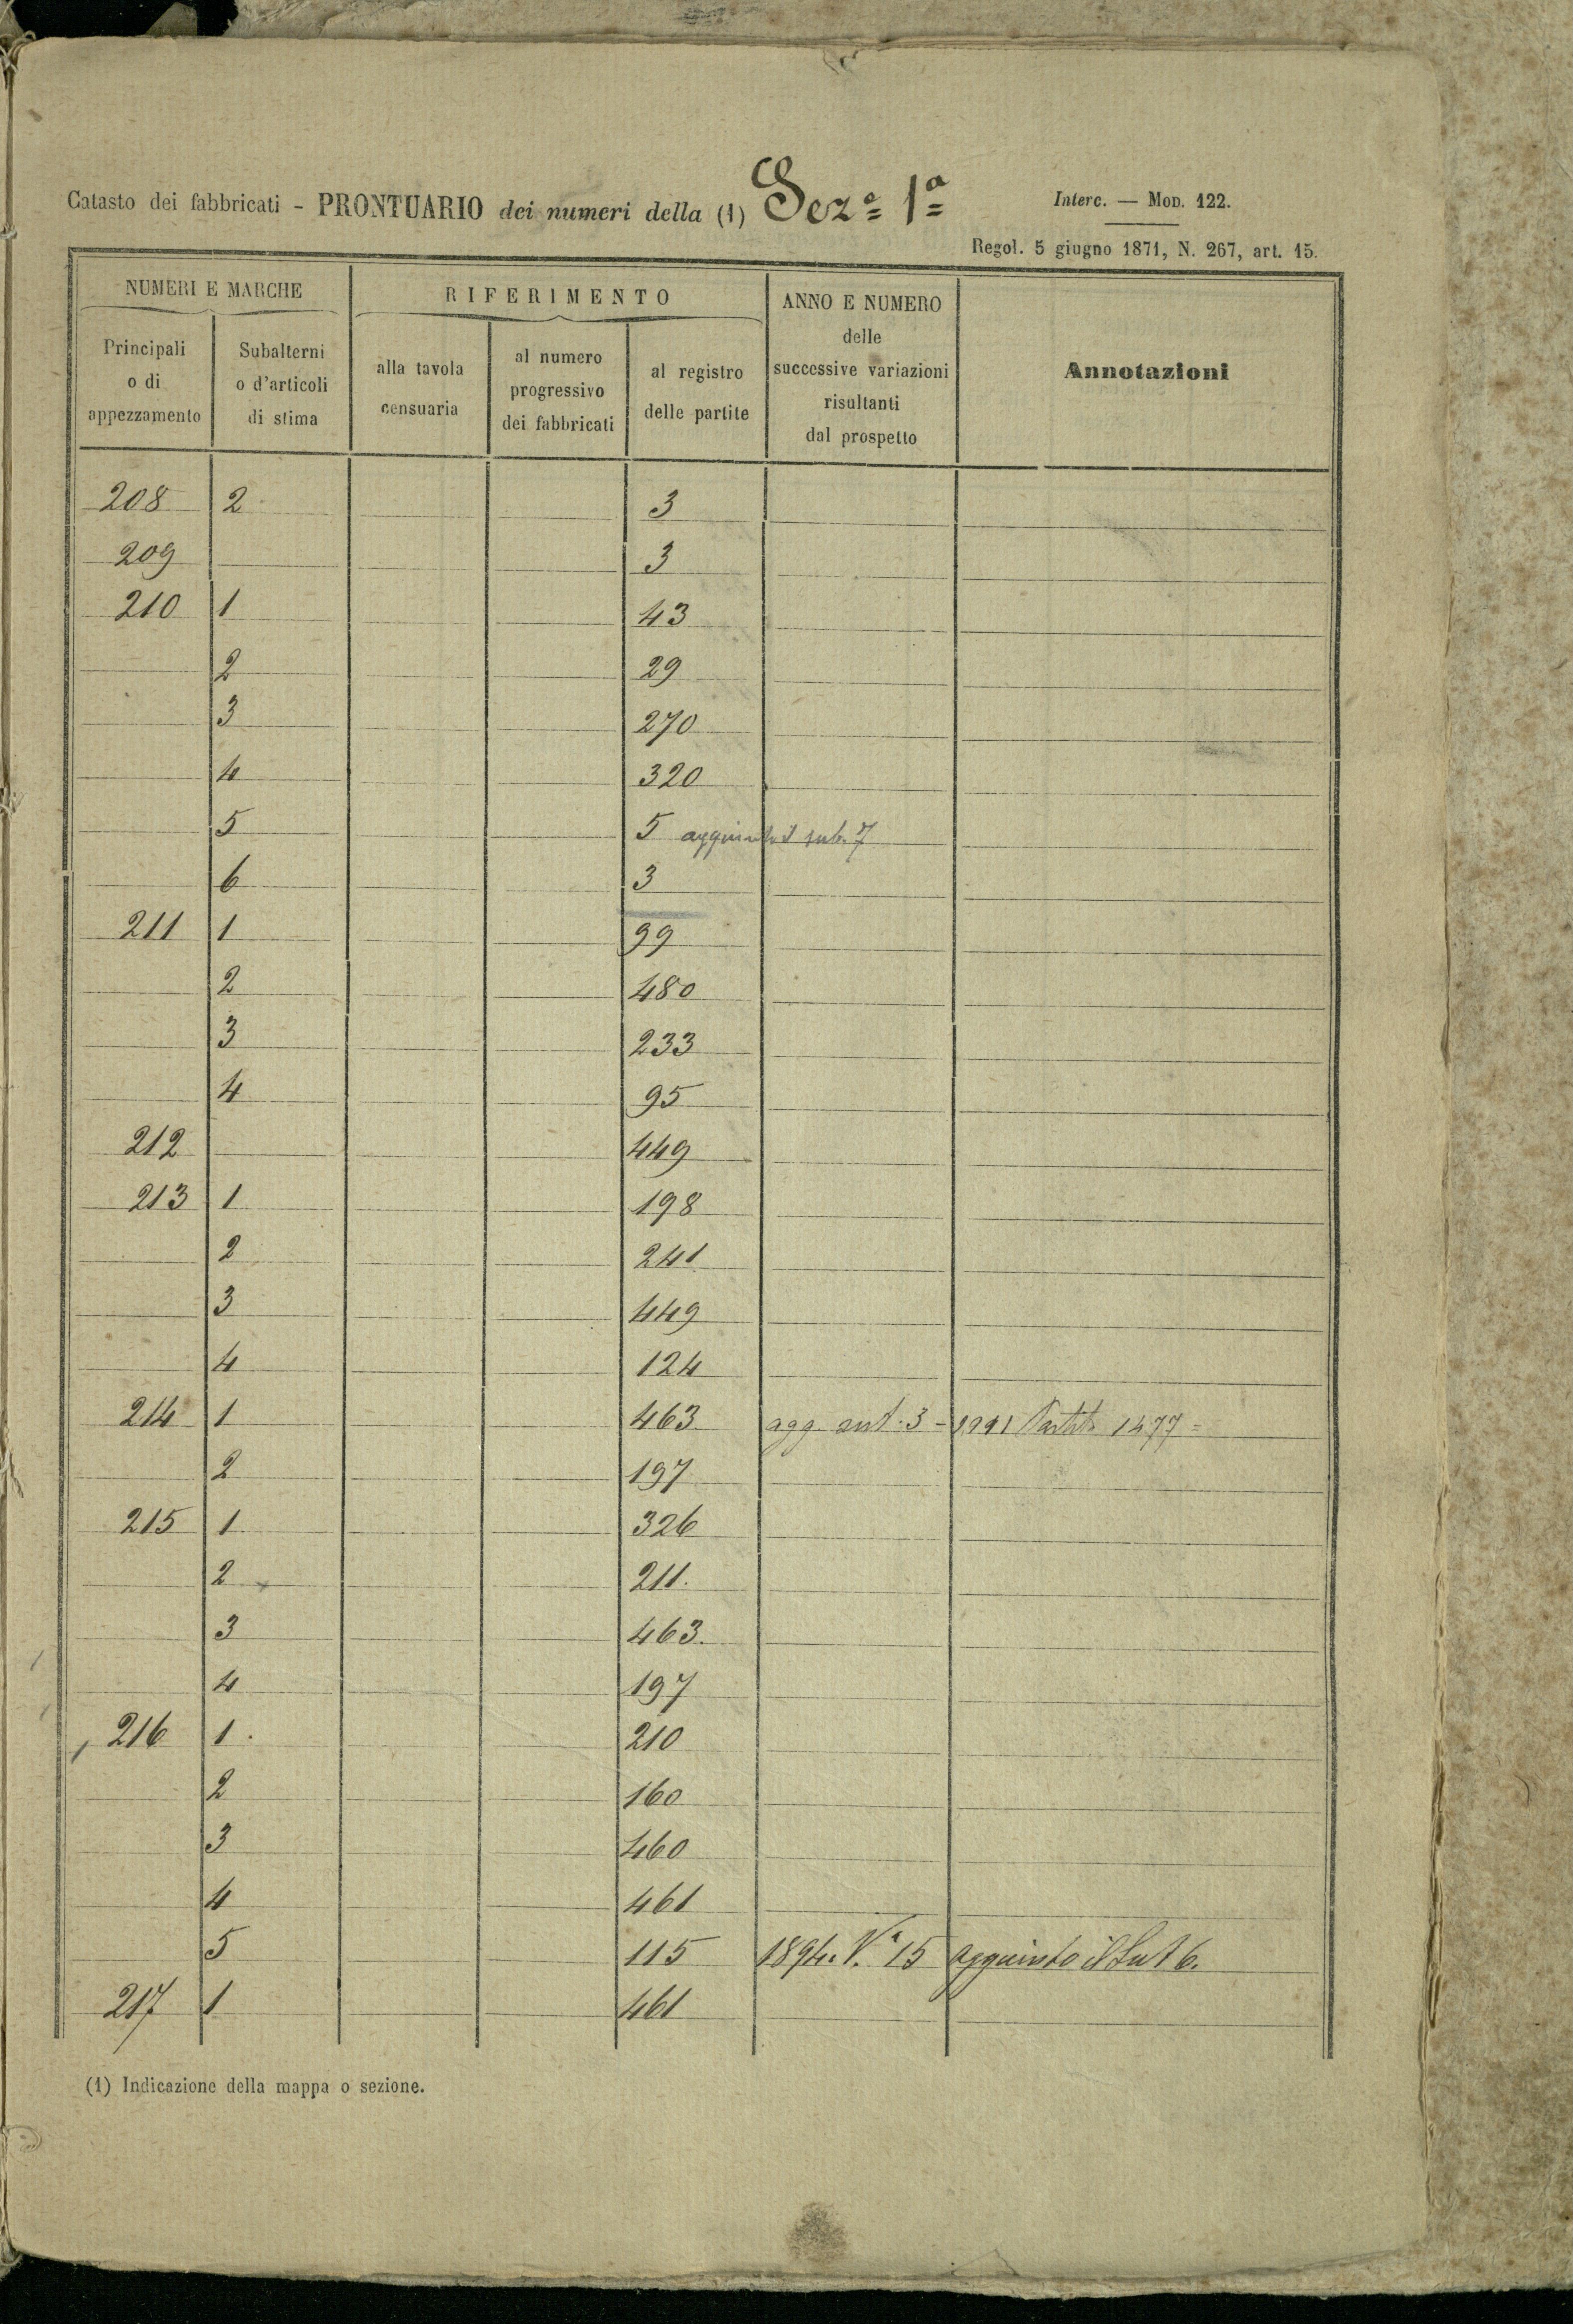 Catasto dei fabbricati - PRONTUARIO dei numeri della (1) Sezª 1ª
Interc. — Mod. 122.
Regol. 5 giugno 1871, N. 267, art. 15.
NUMERI E MARCHE
RIFERIMENTO
ANNO E NUMERO
delle
successive variazioni
risultanti
dal prospetto
Annotazioni
Principali
o di
appezzamento
Subalterni
o d'articoli
di stima
alla tavola
censuaria
al numero
progressivo
dei fabbricati
al registro
delle partite
208 2 3
209 3
210 1 43
2 29
3 270
4 320
5 5 aggiunto sub. 7
6 3
211 1 99
2 480
3 233
4 95
212 449
213 1 198
2 241
3 449
4 124
214 1 463 agg. 3 - Partita 1477 =
2 197
215 1 326
2 211.
3 463.
4 197
216 1. 210
2 160
3 460
4 461
5 115 1894. N.º 15 aggiunto il Sub 6.
217 1 461
(1) Indicazione della mappa o sezione.